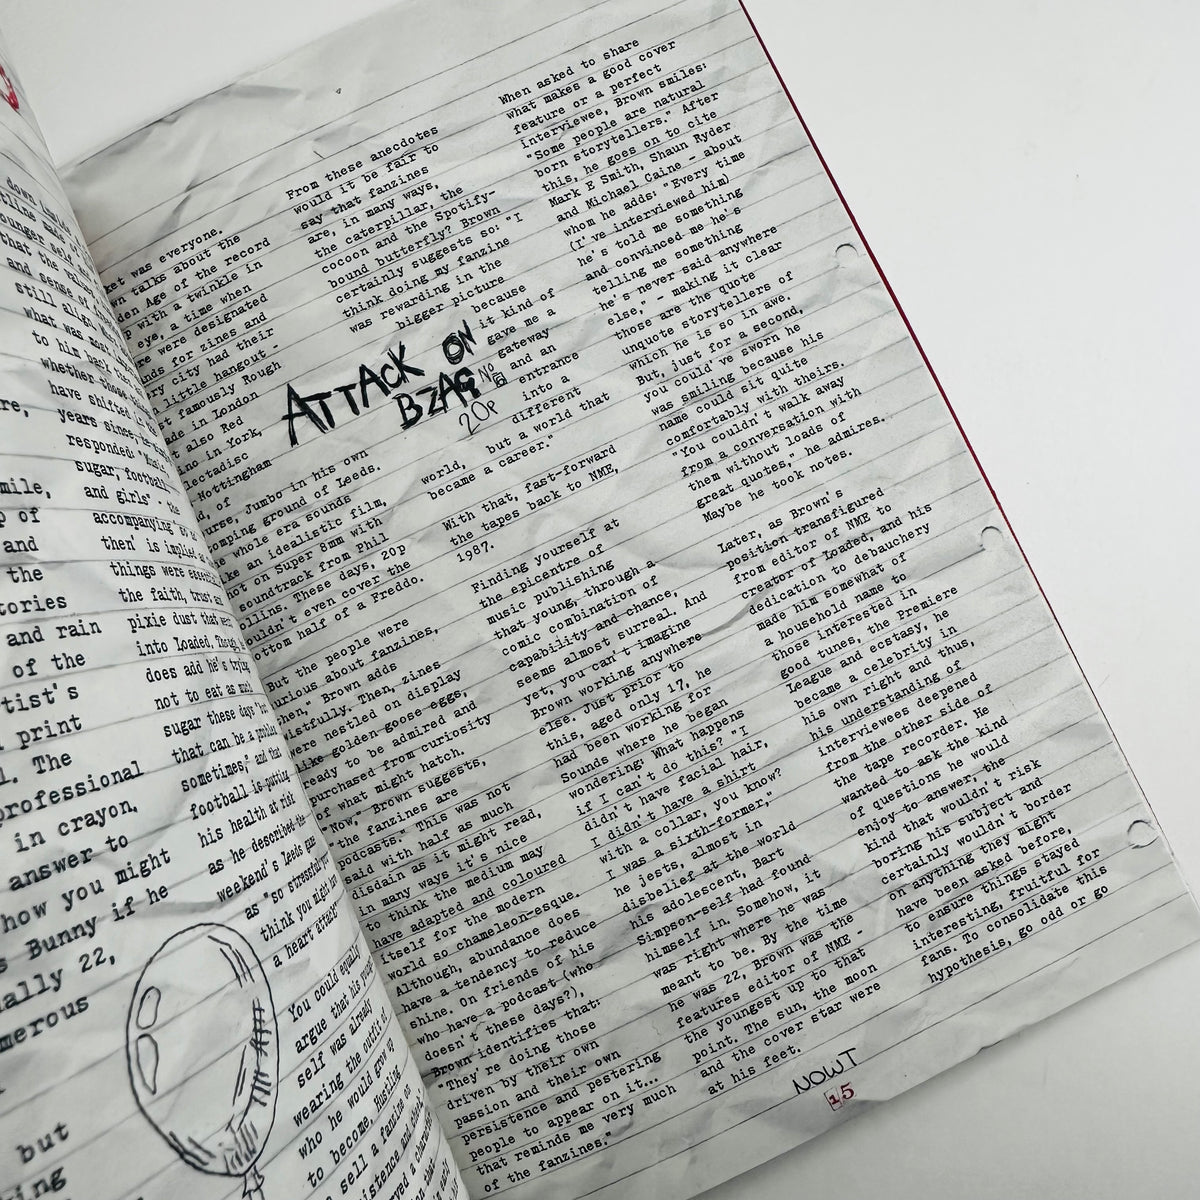 down
that the
and sense of
still
what was
to him
whether
have shifted
years since,
responded:
sugar, football
and girls" - the
accompanying
then' is implied
things were
the faith, trust and
pixie dust that went
into Loaded. Though,
does add he's trying
not to eat as much
sugar these days
that can be a problem
sometimes," and that
football is putting
his health at risk
as he described the
weekend's Leeds
as "so stressful
think you might
a heart attack"
You could equally
argue that his
self was already
wearing the outfit of
who he would grow up
to become. Hustling
sell a fanzine
mile,
of
and
the
and rain
of the
print
The
professional
in crayon.
answer to
how you might
Bunny if he
22,
but
was everyone.
talks about the
Age of the record
with a twinkle in
eye, a time when
were designated
for zines and
city had their
little hangout -
famously Rough
in London
also Red
in York,
Nottingham
of
Jumbo in his own
ground of Leeds.
whole era sounds
an idealistic film,
on Super 8mm with
soundtrack from Phil
These days, 20p
even cover the
half of a Freddo.
But the people were
about fanzines,
Brown adds
Then, zines
were nestled on display
like golden goose eggs,
ready to be admired and
purchased from curiosity
of what might hatch.
"Now," Brown suggests,
"the fanzines are
podcasts." This was not
said with half as much
disdain as it might read,
in many ways it's nice
to think the medium may
have adapted and coloured
itself for the modern
world so chameleon-esque.
Although, abundance does
have a tendency to reduce
shine. On friends of his
who have a podcast (who
doesn't these days?),
Brown identifies that:
"They're doing those
driven by their own
passion and their own
persistence and pestering
people to appear on it...
that reminds me very much
of the fanzines."
From these anecdotes
would it be fair to
say that fanzines
are, in many ways,
the caterpillar, the
cocoon and the Spotify-
bound butterfly? Brown
certainly suggests so: "I
think doing my fanzine
was rewarding in the
bigger picture
because
it kind of
gave me a
gateway
and an
entrance
into a
different
world, but a world that
became a career."
ATTACK ON
BZAG
No
20p
With that, fast-forward
the tapes back to NME,
1987.
Finding yourself at
the epicentre of
music publishing
that young, through a
comic combination of
capability and chance,
seems almost surreal. And
yet, you can't imagine
Brown working anywhere
else. Just prior to
this, aged only 17, he
had been working for
Sounds where he began
wondering: "What happens
if I can't do this? "I
didn't have facial hair,
I didn't have a shirt
with a collar, you know?
I was a sixth-former,"
he jests, almost in
disbelief at the world
his adolescent, Bart
Simpson-self had found
himself in. Somehow, it
was right where he was
meant to be. By the time
he was 22, Brown was the
features editor of NME -
the youngest up to that
point. The sun, the moon
and the cover star were
at his feet.
When asked to share
what makes a good cover
feature or a perfect
interviewee, Brown smiles:
"Some people are natural
born storytellers." After
this, he goes on to cite
Mark E Smith, Shaun Ryder
and Michael Caine - about
whom he adds: "Every time
(I've interviewed him)
he's told me something
and convinced me he's
telling me something
he's never said anywhere
else," - making it clear
those are the quote
unquote storytellers of
which he is so in awe.
But, just for a second,
you could've sworn he
was smiling because his
name could sit quite
comfortably with theirs.
"You couldn't walk away
from a conversation with
them without loads of
great quotes," he admires.
Maybe he took notes.
Later, as Brown's
position transfigured
from editor of NME to
creator of Loaded, and his
dedication to debauchery
made him somewhat of
a household name to
those interested in
good tunes, the Premiere
League and ecstasy, he
became a celebrity in
his own right and thus,
his understanding of
interviewees deepened
from the other side of
the tape recorder. He
wanted to ask the kind
of questions he would
enjoy to answer, the
kind that wouldn't risk
boring his subject and
certainly wouldn't border
on anything they might
have been asked before,
to ensure things stayed
interesting, fruitful for
fans. To consolidate this
hypothesis, go odd or go
NOWT
15